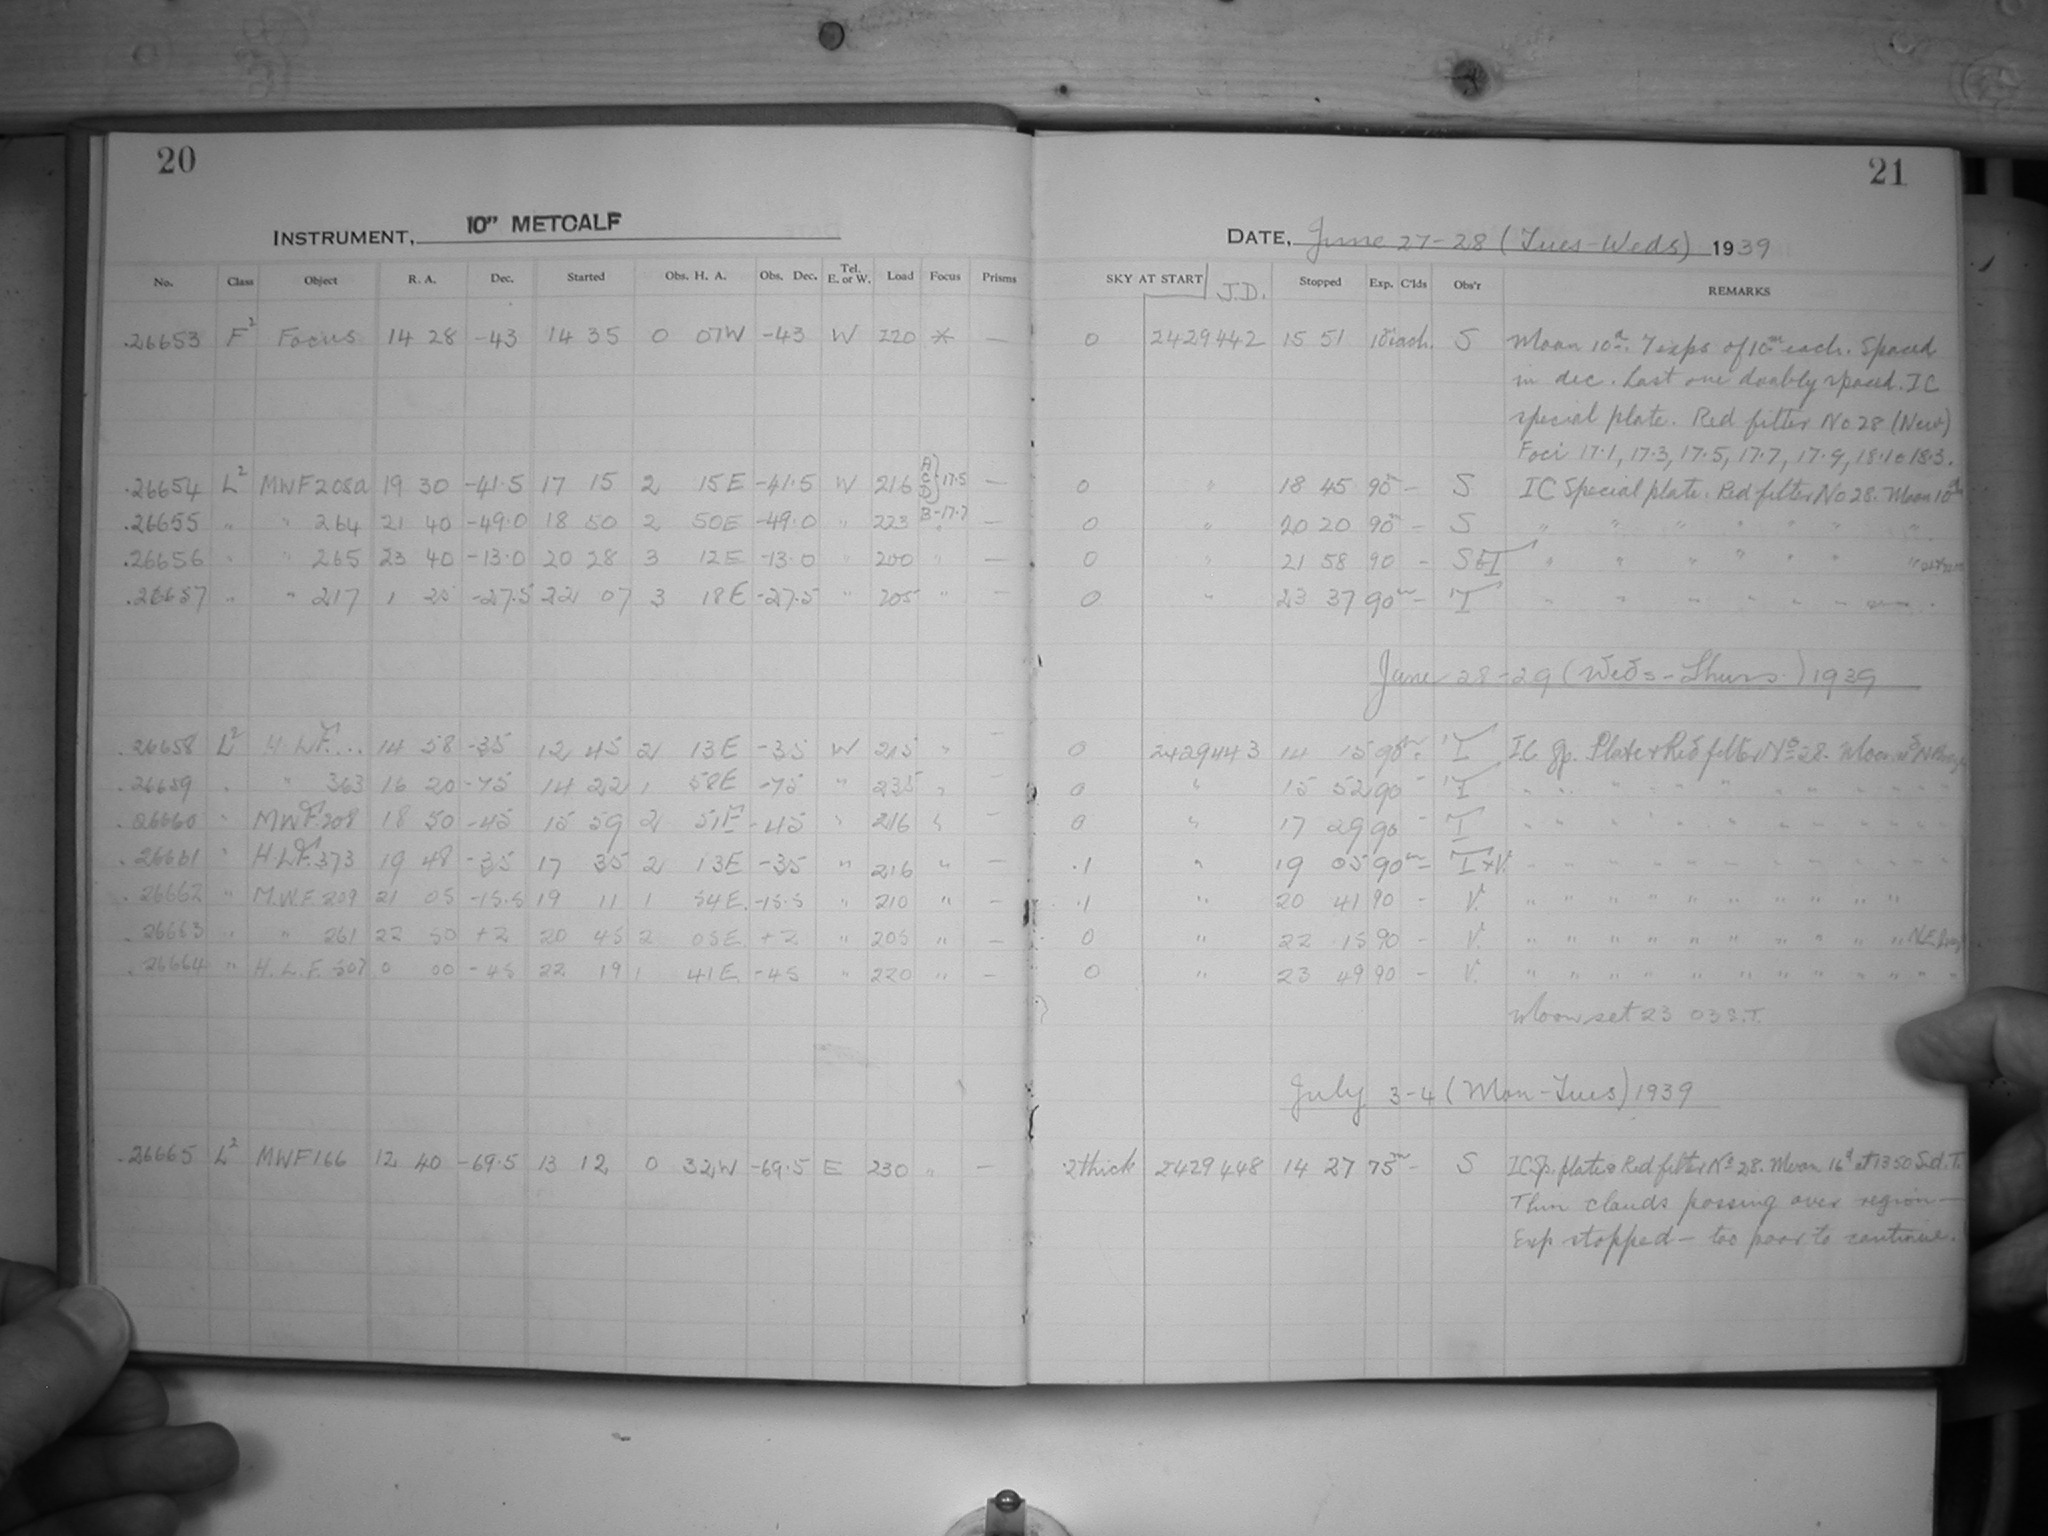 20
INSTRUMENT, 10" METCALF
No. Class Object R. A. Dec. Started Obs. H. A. Obs. Dec. Tel. E. or W. Load Focus Prisms
21
DATE, June 27-28 (Tues-Weds) 1939
SKY AT START J.D. Stopped Exp. C'lds Obs'r REMARKS
26653 F2 Focus 14 28 -43 14 35 0 07W -43 W 220 * — 0 2429442 15 51 10m each. S Moon 10d. 7 exps of 10m each. Spaced
in dec. Last one doubly spaced. IC
special plate. Red filter No 28 (New)
Foci 17.1, 17.3, 17.5, 17.7, 17.9, 18.1 & 18.3.
26654 L2 MWF208a 19 30 -41.5 17 15 2 15E -41.5 W 216 A C D } 17.5 — 0 " 18 45 90m — S IC Special plate. Red filter No 28. Moon 10d
26655 " " 264 21 40 -49.0 18 50 2 50E -49.0 " 223 B-17.7 — 0 " 20 20 90m — S " " " " " " "
26656 " " 265 23 40 -13.0 20 28 3 12E -13.0 " 200 " — 0 " 21 58 90 — S&T " " " " " " "
26657 " " 217 1 25 -27.5 22 07 3 18E -27.5 " 205 " — 0 " 23 37 90m — T " " " " " "
June 28-29 (Weds-Thurs.) 1939
26658 L2 H.L.F. 14 58 -35 12 45 2 13E -35 W 215 " — 0 2429443 14 15 90m — T IC Sp. Plate & Red filter No 28. Moon
26659 " " 363 16 20 -75 14 22 1 58E -75 " 235 " 0 " 15 52 90 — T " " " " " "
26660 " MWF.208 18 50 -45 15 59 2 51E -45 " 216 " — 0 " 17 29 90 — T " " " " " "
26661 " H.L.F.373 19 48 -35 17 35 2 13E -35 " 216 " — .1 " 19 05 90m — T+V. " " " " " "
26662 " M.W.F.209 21 05 -15.5 19 11 1 54E. -15.5 " 210 " — .1 " 20 41 90 — V. " " " " " " " " "
26663 " " 261 22 50 +2 20 45 2 05E +2 " 205 " — 0 " 22 15 90 — V. " " " " " " " " "
26664 " H.L.F. 307 0 00 -45 22 19 1 41E -45 " 220 " — 0 " 23 49 90 — V. " " " " " " " " "
Moon set 23 03 S.T.
July 3-4 (Mon-Tues) 1939
26665 L2 MWF166 12 40 -69.5 13 12 0 32W -69.5 E 230 " — .2 thick 2429448 14 27 75m — S IC Sp. plate & Red filter No 28. Moon 16d at 1350 Sd. T.
Thin clouds passing over region —
Exp stopped — too poor to continue.